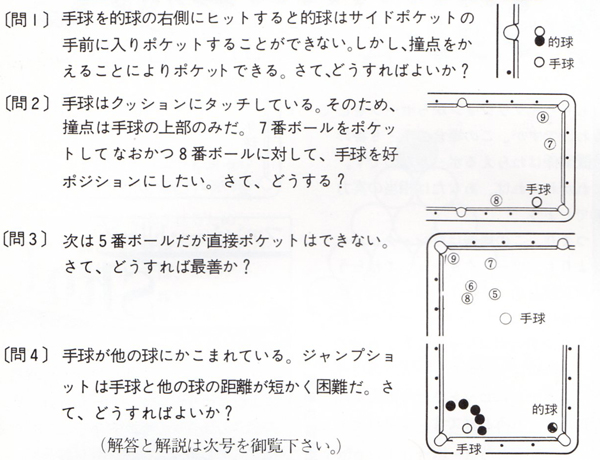 〔問1〕 手球を的球の右側にヒットすると的球はサイドポケットの
手前に入りポケットすることができない。しかし、撞点をか
えることによりポケットできる。さて、どうすればよいか？
的球
手球
〔問2〕 手球はクッションにタッチしている。そのため、
撞点は手球の上部のみだ。7番ボールをポケッ
トしてなおかつ8番ボールに対して、手球を好
ポジションにしたい。さて、どうする？
⑨
⑦
手球
⑧
〔問3〕 次は5番ボールだが直接ポケットはできない。
さて、どうすれば最善か？
⑨
⑦
⑥
⑧
⑤
手球
〔問4〕 手球が他の球にかこまれている。ジャンプショ
ットは手球と他の球の距離が短かく困難だ。さ
て、どうすればよいか？
的球
手球
（解答と解説は次号を御覧下さい。）